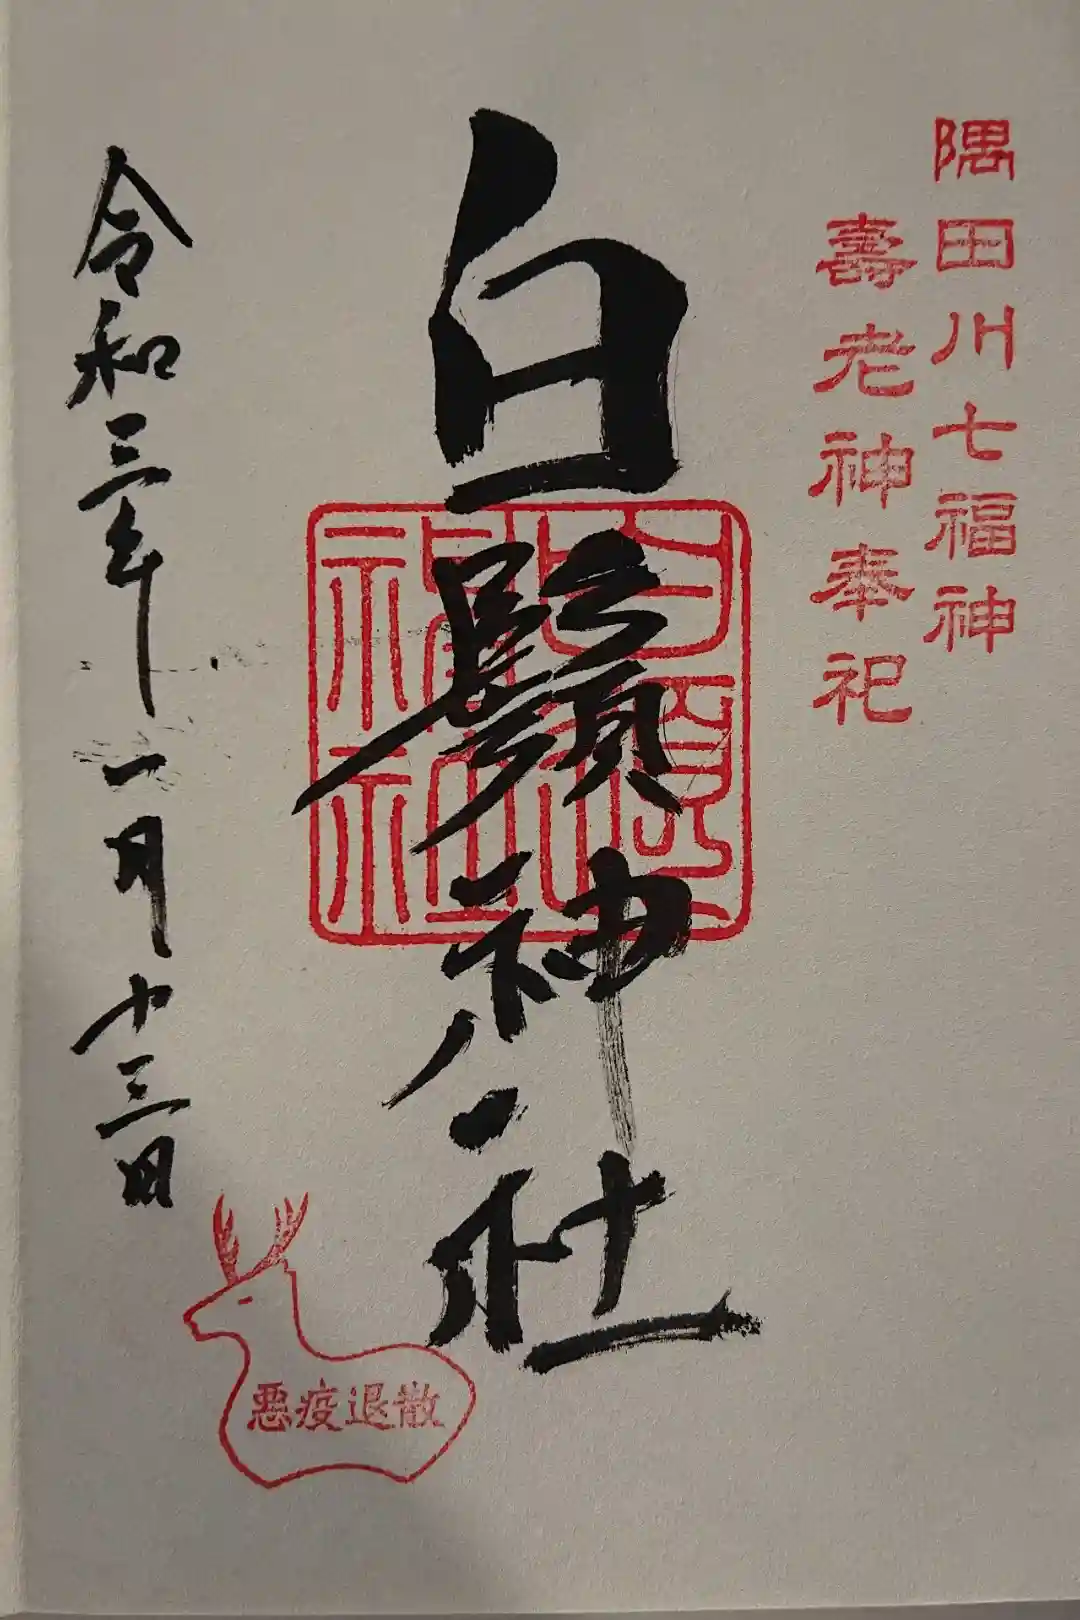 隅田川七福神
壽老神奉祀
白鬚神社
白鬚神社
令和三年一月十三日
悪疫退散